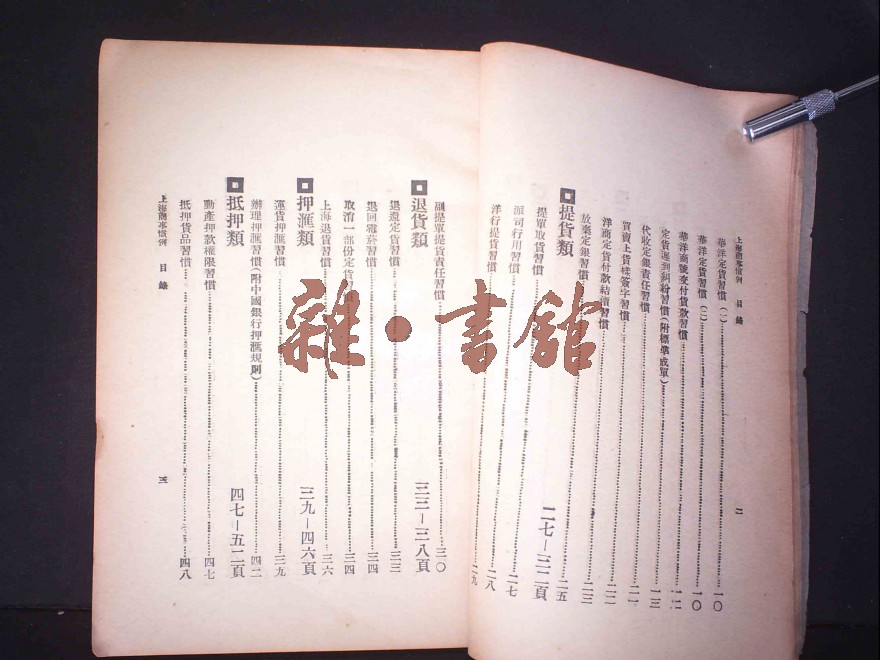 上海商事慣例 目錄 二
華洋定貨習慣(一)一〇
華洋定貨習慣(二)一〇
華洋商號交付貨款習慣一二
定貨遲到糾紛習慣(附標準成單)
代收定銀責任習慣
買賣上貨樣簽字習慣
洋商定貨付款結價習慣
放棄定銀習慣二三
提貨類 二七—三二頁
提單取貨習慣二五
派司行用習慣二七
洋行提貨習慣二八
二九
副提單提貨責任習慣三〇
退貨類 三三—三八頁
退還定貨習慣三三
退回雜菸習慣三四
取消一部份定貨習慣三四
上海退貨習慣三六
押滙類 三九—四六頁
運貨押滙習慣三九
辦理押滙習慣(附中國銀行押滙規則)四二
抵押類 四七—五二頁
動產押款權限習慣四七
抵押貨品習慣四八
上海商事慣例 目錄 三
雜·書館